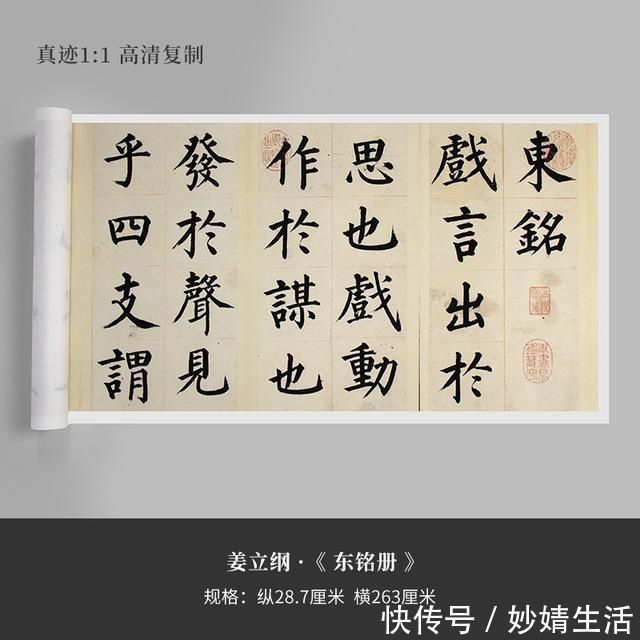 真迹1:1 高清复制
東銘
戲言出於
思也戲動
作於謀也
發於聲見
乎四支謂
姜立纲·《 东铭册 》
规格：纵28.7厘米 横263厘米
快传号／妙婧生活